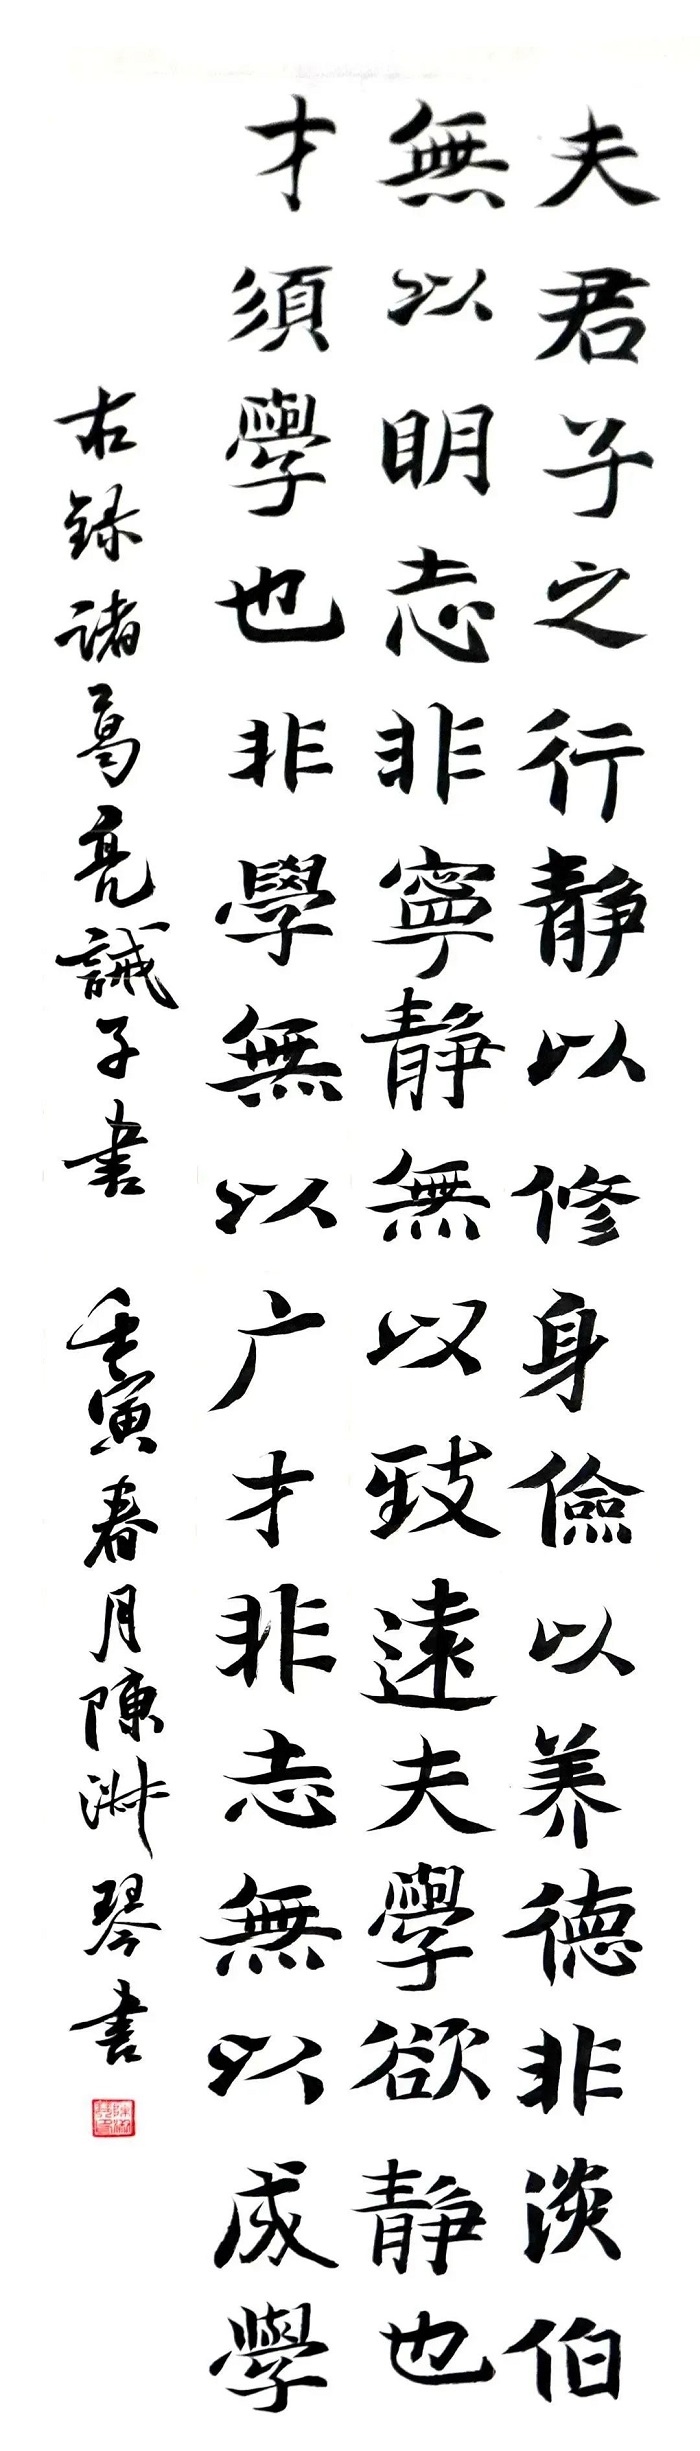 夫君子之行静以修身儉以养德非淡伯
無以明志非寧静無以致遠夫學欲静也
才須學也非學無以广才非志無以成學
右録諸葛亮誡子書 壬寅春月陳淋琴書